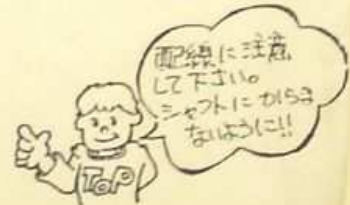 配線に注意
して下さい。
シャフトにからま
ないように!!
ToP